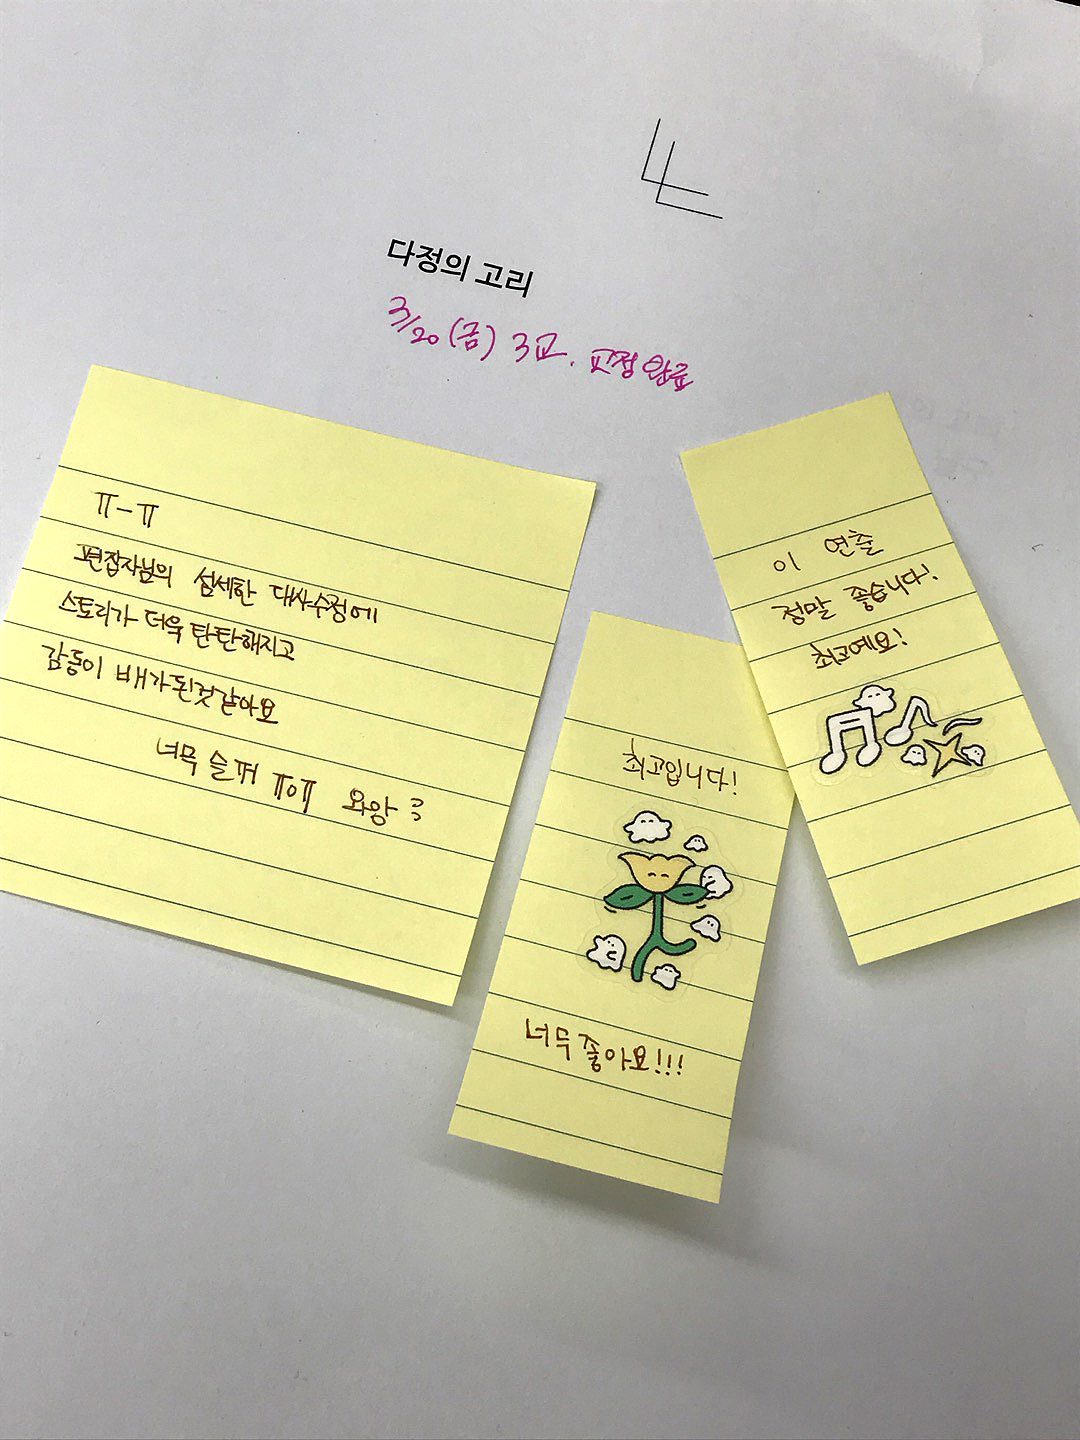 다정의 고리
3/20 (금) 3교. 교정완료
ㅠ-ㅠ
편집자님의 섬세한 대사수정에
스토리가 더욱 탄탄해지고
감동이 배가된것같아요
너무 슬퍼 ㅠoㅠ 와앙
최고입니다!
너무 좋아요!!!
이 연출
정말 좋습니다!
최고예요!